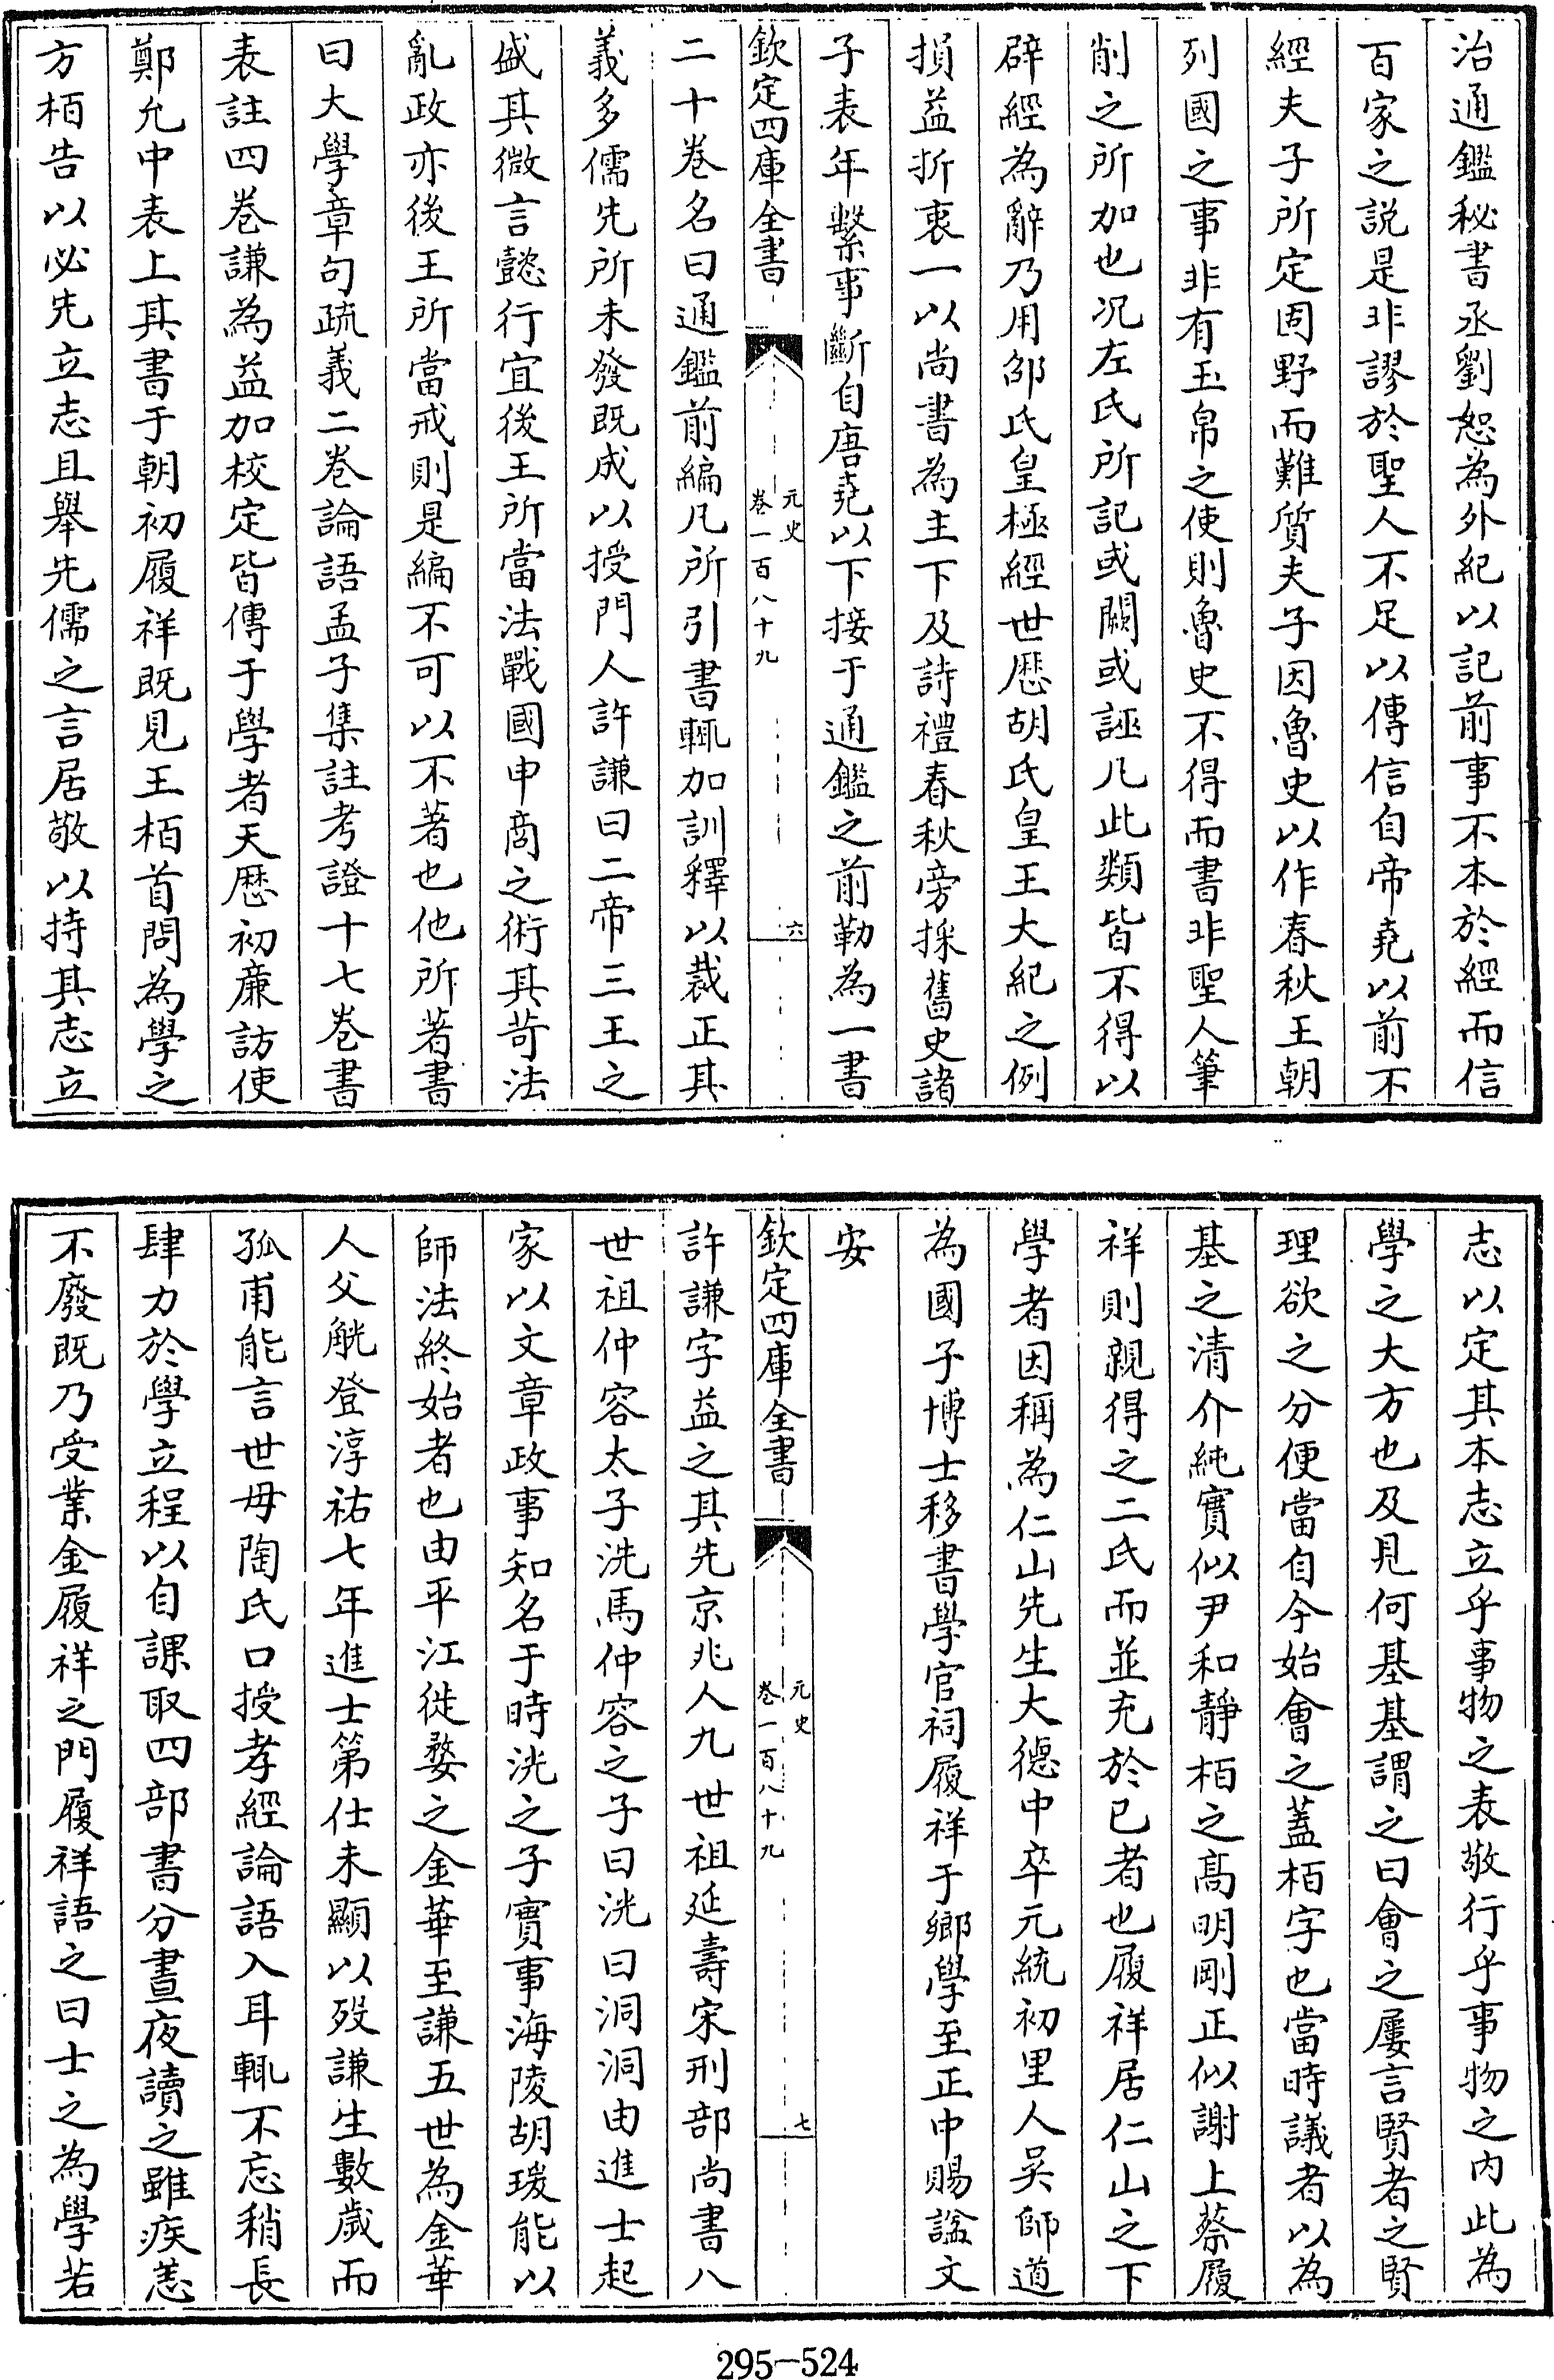 治通鑑秘書丞劉恕為外紀以記前事不本於經而信
百家之説是非謬於聖人不足以傳信自帝堯以前不
經夫子所定固野而難質夫子因魯史以作春秋王朝
列國之事非有玉帛之使則魯史不得而書非聖人筆
削之所加也况左氏所記或闕或誣凡此類皆不得以
辟經為辭乃用邵氏皇極經世厯胡氏皇王大紀之例
損益折衷一以尚書為主下及詩禮春秋旁採舊史諸
子表年繫事斷自唐堯以下接于通鑑之前勒為一書
欽定四庫全書
元史
卷一百八十九
六
二十卷名曰通鑑前編凡所引書輒加訓釋以裁正其
義多儒先所未發既成以授門人許謙曰二帝三王之
盛其微言懿行宜後王所當法戰國申商之術其苛法
亂政亦後王所當戒則是編不可以不著也他所著書
曰大學章句疏義二卷論語孟子集註考證十七卷書
表註四卷謙為益加校定皆傳于學者天厯初廉訪使
鄭允中表上其書于朝初履祥既見王栢首問為學之
方栢告以必先立志且舉先儒之言居敬以持其志立
志以定其本志立乎事物之表敬行乎事物之内此為
學之大方也及見何基基謂之曰會之屢言賢者之賢
理欲之分便當自今始會之蓋栢字也當時議者以為
基之清介純實似尹和靜栢之髙明剛正似謝上蔡履
祥則親得之二氏而並充於已者也履祥居仁山之下
學者因稱為仁山先生大德中卒元統初里人吳師道
為國子博士移書學官祠履祥于鄉學至正中賜諡文
安
欽定四庫全書
元史
卷一百八十九
七
許謙字益之其先京兆人九世祖延壽宋刑部尚書八
世祖仲容太子洗馬仲容之子曰洸曰洞洞由進士起
家以文章政事知名于時洸之子實事海陵胡瑗能以
師法終始者也由平江徙婺之金華至謙五世為金華
人父觥登淳祐七年進士第仕未顯以歿謙生數歲而
孤甫能言世母陶氏口授孝經論語入耳輒不忘稍長
肆力於學立程以自課取四部書分晝夜讀之雖疾恙
不廢既乃受業金履祥之門履祥語之曰士之為學若
295-524